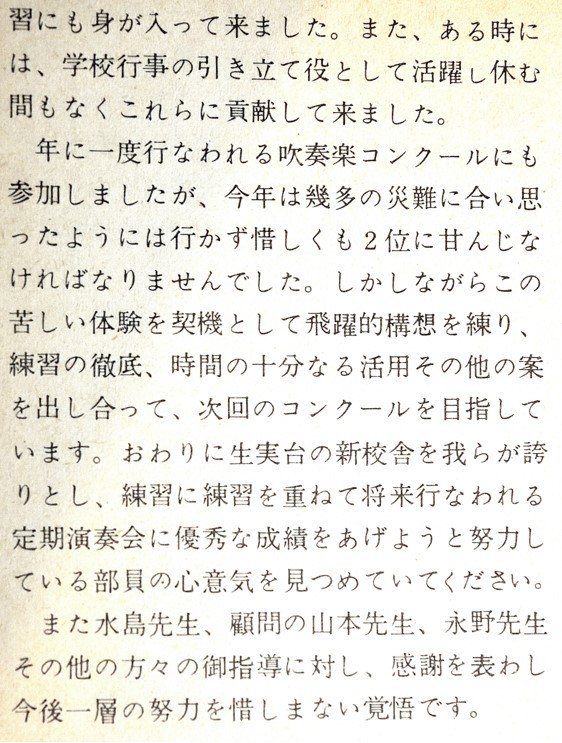 習にも身が入って来ました。また、ある時に
は、学校行事の引き立て役として活躍し休む
間もなくこれらに貢献して来ました。
　年に一度行なわれる吹奏楽コンクールにも
参加しましたが、今年は幾多の災難に合い思
ったようには行かず惜しくも２位に甘んじな
ければなりませんでした。しかしながらこの
苦しい体験を契機として飛躍的構想を練り、
練習の徹底、時間の十分なる活用その他の案
を出し合って、次回のコンクールを目指して
います。おわりに生実台の新校舎を我らが誇
りとし、練習に練習を重ねて将来行なわれる
定期演奏会に優秀な成績をあげようと努力し
ている部員の心意気を見つめていてください。
　また水島先生、顧問の山本先生、永野先生
その他の方々の御指導に対し、感謝を表わし
今後一層の努力を惜しまない覚悟です。